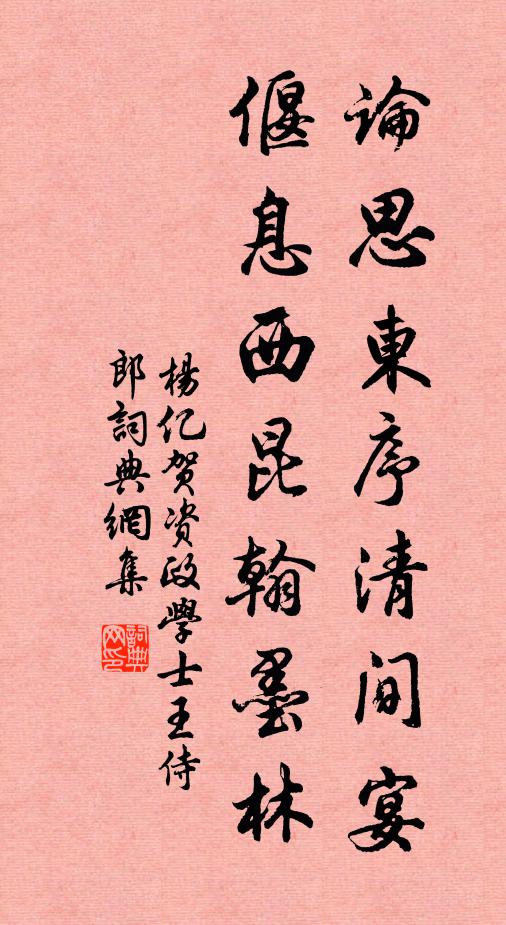 論思東序清間宴
偃息西昆翰墨林
楊亿贺资政學士王侍
郎詞典網集
詞典网印